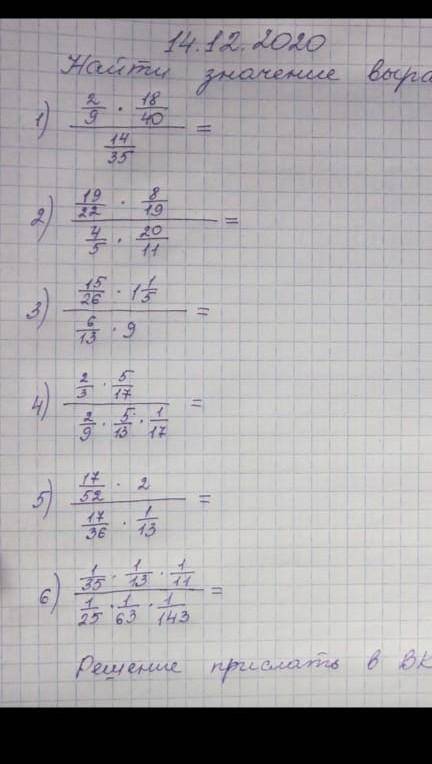 14.12.2020
Найти значение выра
1) (2/9 · 18/40) / (14/35) =
2) (19/22 · 8/19) / (4/5 · 20/11) =
3) (15/26 · 1 1/5) / (6/13 · 9) =
4) (2/3 · 5/17) / (2/9 · 5/13 · 1/17) =
5) (17/52 · 2) / (17/36 · 1/13) =
6) (1/35 · 1/13 · 1/11) / (1/25 · 1/63 · 1/143) =
Решение прислать в ВК